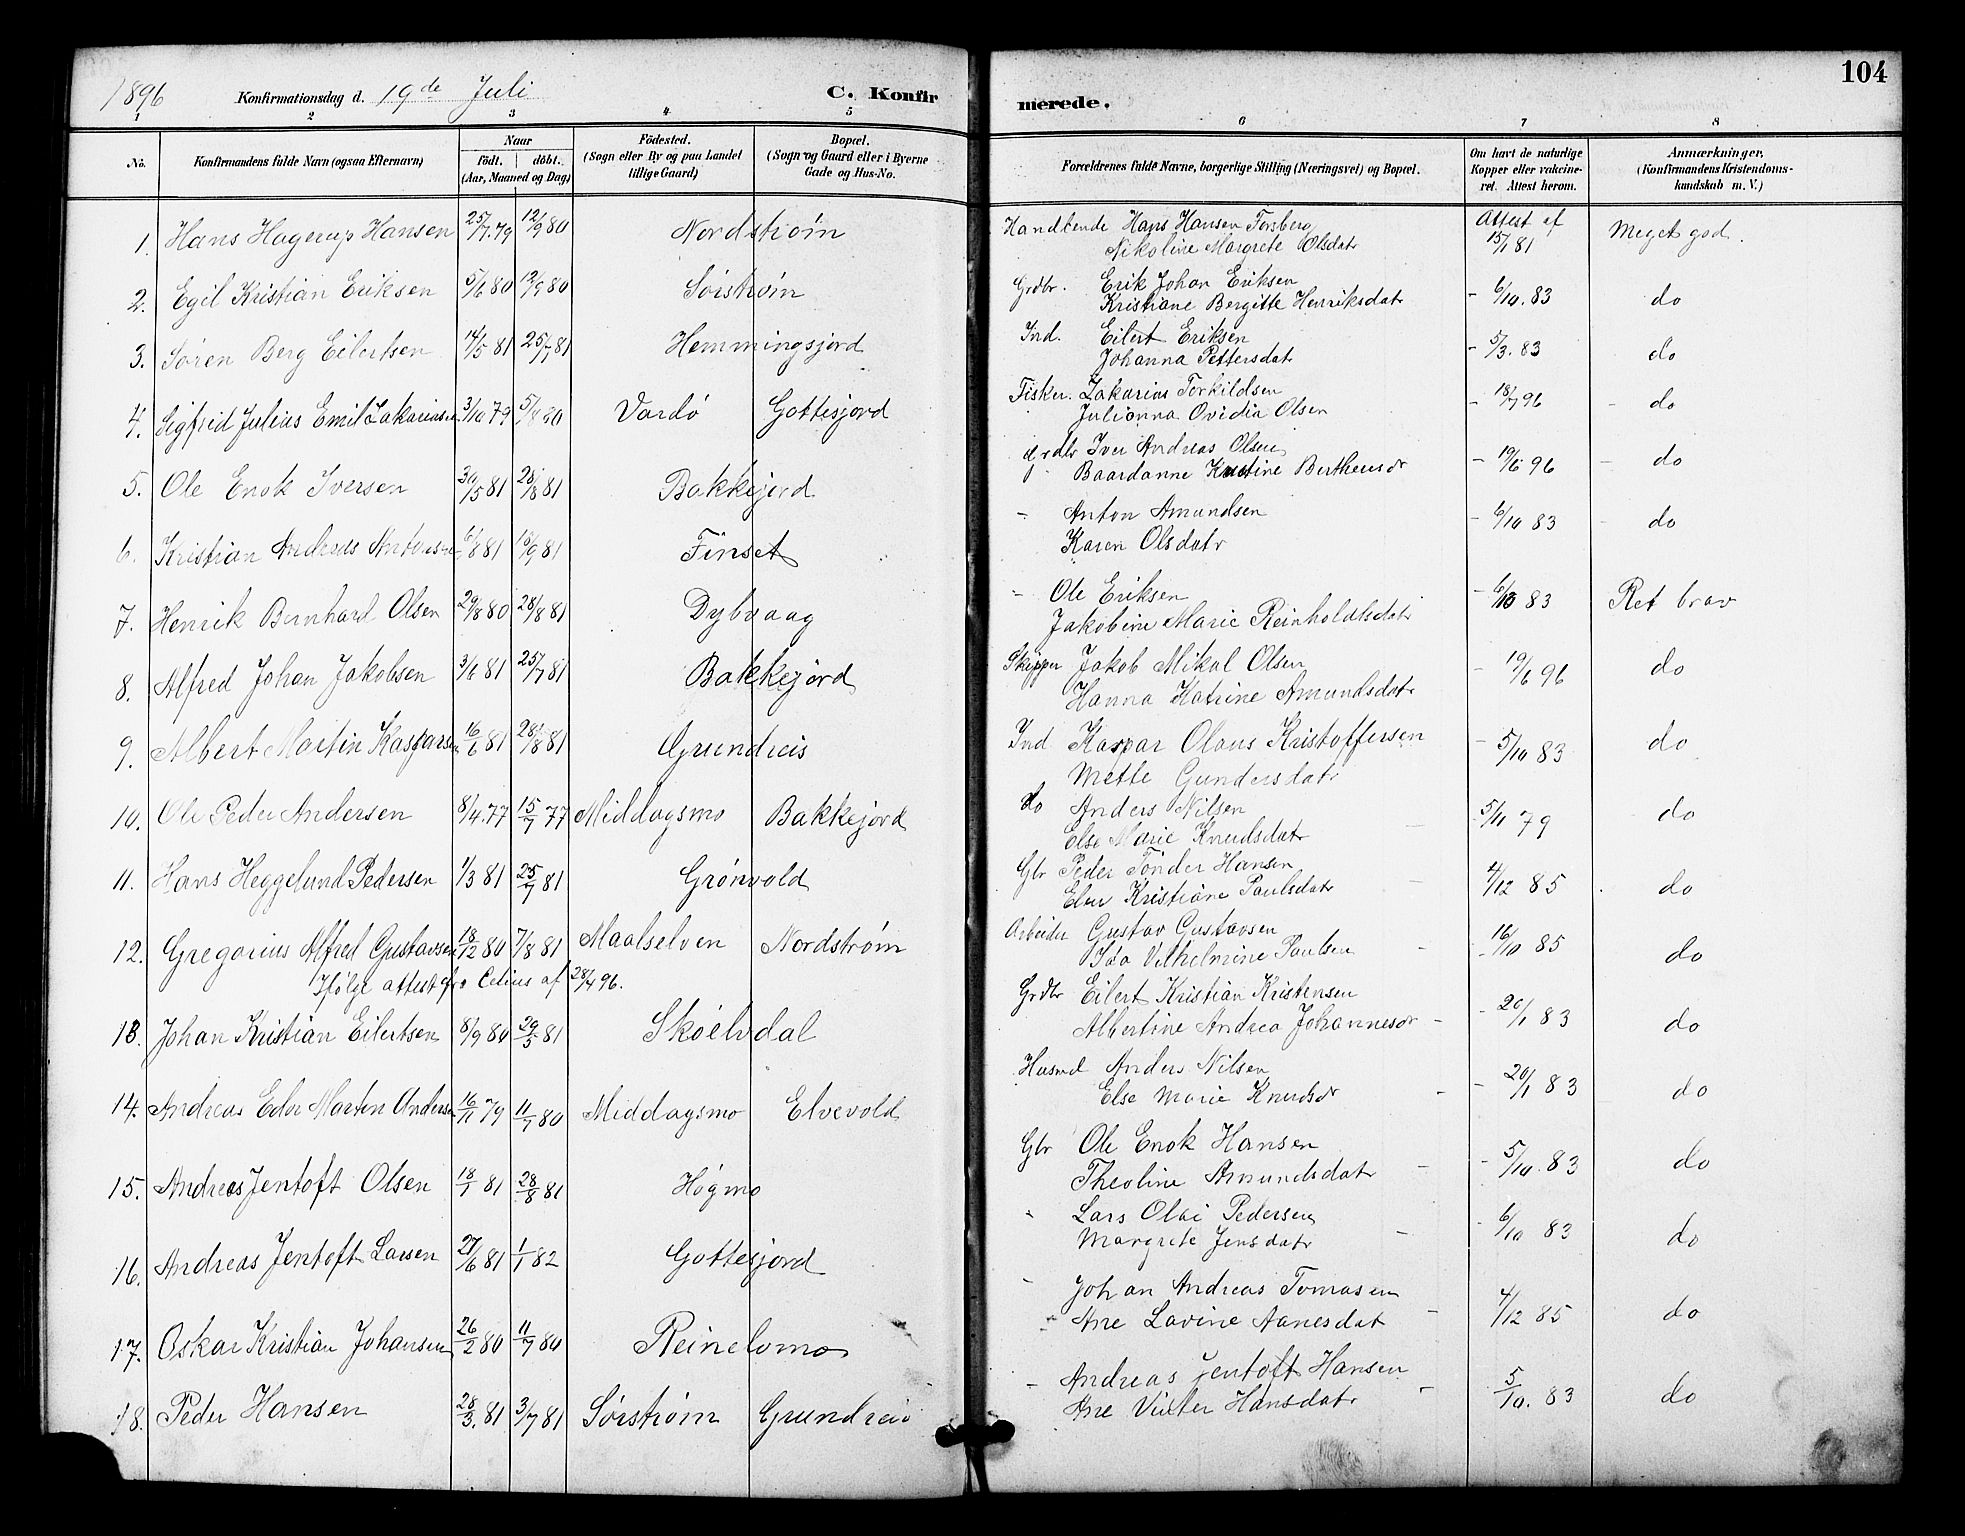 104
1896 Konfirmationsdag d. 19de Juli C. Konfir merede.
1 2 3 4 5 6 7 8
No. Konfirmandens fulde Navn (ogsaa Efternavn) Naar födt. döbt. (Aar, Maaned og Dag) Födested. (Sogn eller By og paa Landet tillige Gaard) Bopæl. (Sogn og Gaard eller i Byerne Gade og Hus-No. Forældrenes fulde Navne, borgerlige Stilling (Næringsvei) og Bopæl. Om havt de naturlige Kopper eller vakcineret. Attest herom. Anmærkninger, (Konfirmandens Kristendomskundskab m. V.)
1. Hans Hagerup Hansen 25/7.79 12/9 80 Nordstrøm Handlende Hans Hansen Forsberg Attest af 15/1 81 Meget god.
Nikoline Margrete Olsdatr
2. Egil Kristian Eriksen 5/6 80 12/9 80 Sørstrøm Grdbr. Erik Johan Eriksen - 6/10.83 do
Kristiane Bergitte Henriksdatr
3. Søren Berg Eilertsen 14/5 81 25/7 81 Hemmingsjord Ind. Eilert Eriksen - 5/3.83 do
Johanna Pettersdatr
4. Sigfrid Julius Emil Zakariasen 3/10 79 5/4 80 Vardö Gottesjord Fisker. Zakarias Torkildsen - 18/7 96 - do
Julianna Ovidia Olsen
5. Ole Enok Iversen 30/5 81 28/8 81 Bakkejord grdbr Iver Andreas Olsen - 19/6 96 - do
Baardanne Kristine Berthensdr
6. Kristian Andreas Antonsen 6/8 81 18/9 81 Finset - Anton Amundsen - 6/10 83 - do
Karen Olsdatr
7. Henrik Bernhard Olsen 29/8 80 28/8 81 Dybvaag - Ole Eriksen - 6/10 83 Ret brav
Jakobine Marie Reinholdtsdatr
8. Alfred Johan Jakobsen 3/6 81 25/7 81 Bakkejord Skipper Jakob Mikal Olsen - 19/6 96 do
Hanna Katrine Amundsdatr
9. Albert Martin Kasparsen 16/6 81 28/8 81 Grundreis Ind Kaspar Olaus Kristoffersen - 5/10 83 do
Mette Gundersdatr
10. Ole Peder Andersen 8/4.77 15/7 77 Middagsmo Bakkejord do Anders Nilsen 5/11 79 do
Else Marie Knudsdatr
11. Hans Heggelund Pedersen 1/3 81 25/7 81 Grönvold Gbr Peder Tönder Hansen 4/12 85 do
Elen Kristiane Paulsdatr
12. Gregorius Alfred Gustavsen 18/12 80 7/8 81 Maalselven Nordstrøm Arbeider Gustav Gustavsen - 16/10 85 do
Ida Vilhelmine Paulsen
Ifölge attest fra Celius af 28/4 96.
13. Johan Kristian Eilertsen 8/9 80 29/5 81 Skoelvdal Grdbr Eilert Kristian Kristensen - 20/1 83 do
Albertine Andrea Johannesdr
14. Andreas Edor Marten Andersen 16/11 79 11/7 80 Middagsmo Elvevold Husmd Anders Nilsen - 20/1 83 do
Else Marie Knudsdr
15. Andreas Jentoft Olsen 18/1 81 28/8 81 Høgmo Gbr Ole Enok Hansen - 5/10.83 do
Theoline Amundsdatr
16. Andreas Jentoft Larsen 27/6 81 1/1 82 Gottesjord - Lars Olai Pedersen - 6/10 83 do
Margrete Jensdatr
17. Oskar Kristian Johansen 26/2 80 11/7 80 Reinelvmo - Johan Andreas Tomasen 4/12 85 do
Ane Lavine Aanesdat
18. Peder Hansen 28/3.81 3/7 81 Sørstrøm Grundreis - Andreas Jentoft Hansen 5/10.83 do
Ane Hansdatr